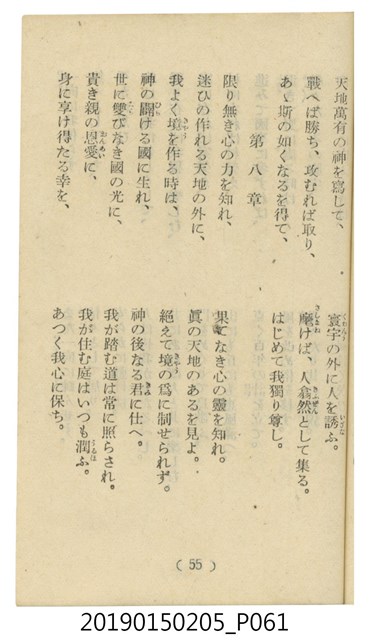 天地萬有の神を寫して、
寰宇の外に人を誘ふ。
戰へば勝ち、攻むれば取り、
麾けば、人翕然として集る。
あゝ斯の如くなるを得て、
はじめて我獨り尊し。
第八章
限り無き心の力を知れ、
果てなき心の靈を知れ。
迷ひの作れる天地の外に、
眞の天地のあるを見よ。
我よく境を作る時は、
絕えて境の爲に制せられず。
神の闢ける國に生れ、
神の後なる君に仕へ。
世に雙びなき國の光に、
我が踏む道は常に照らされ。
貴き親の恩愛に、
我が住む庭はいつも潤ふ。
身に享け得たる幸を、
あつく我心に保ち。
(55)
20190150205_P061